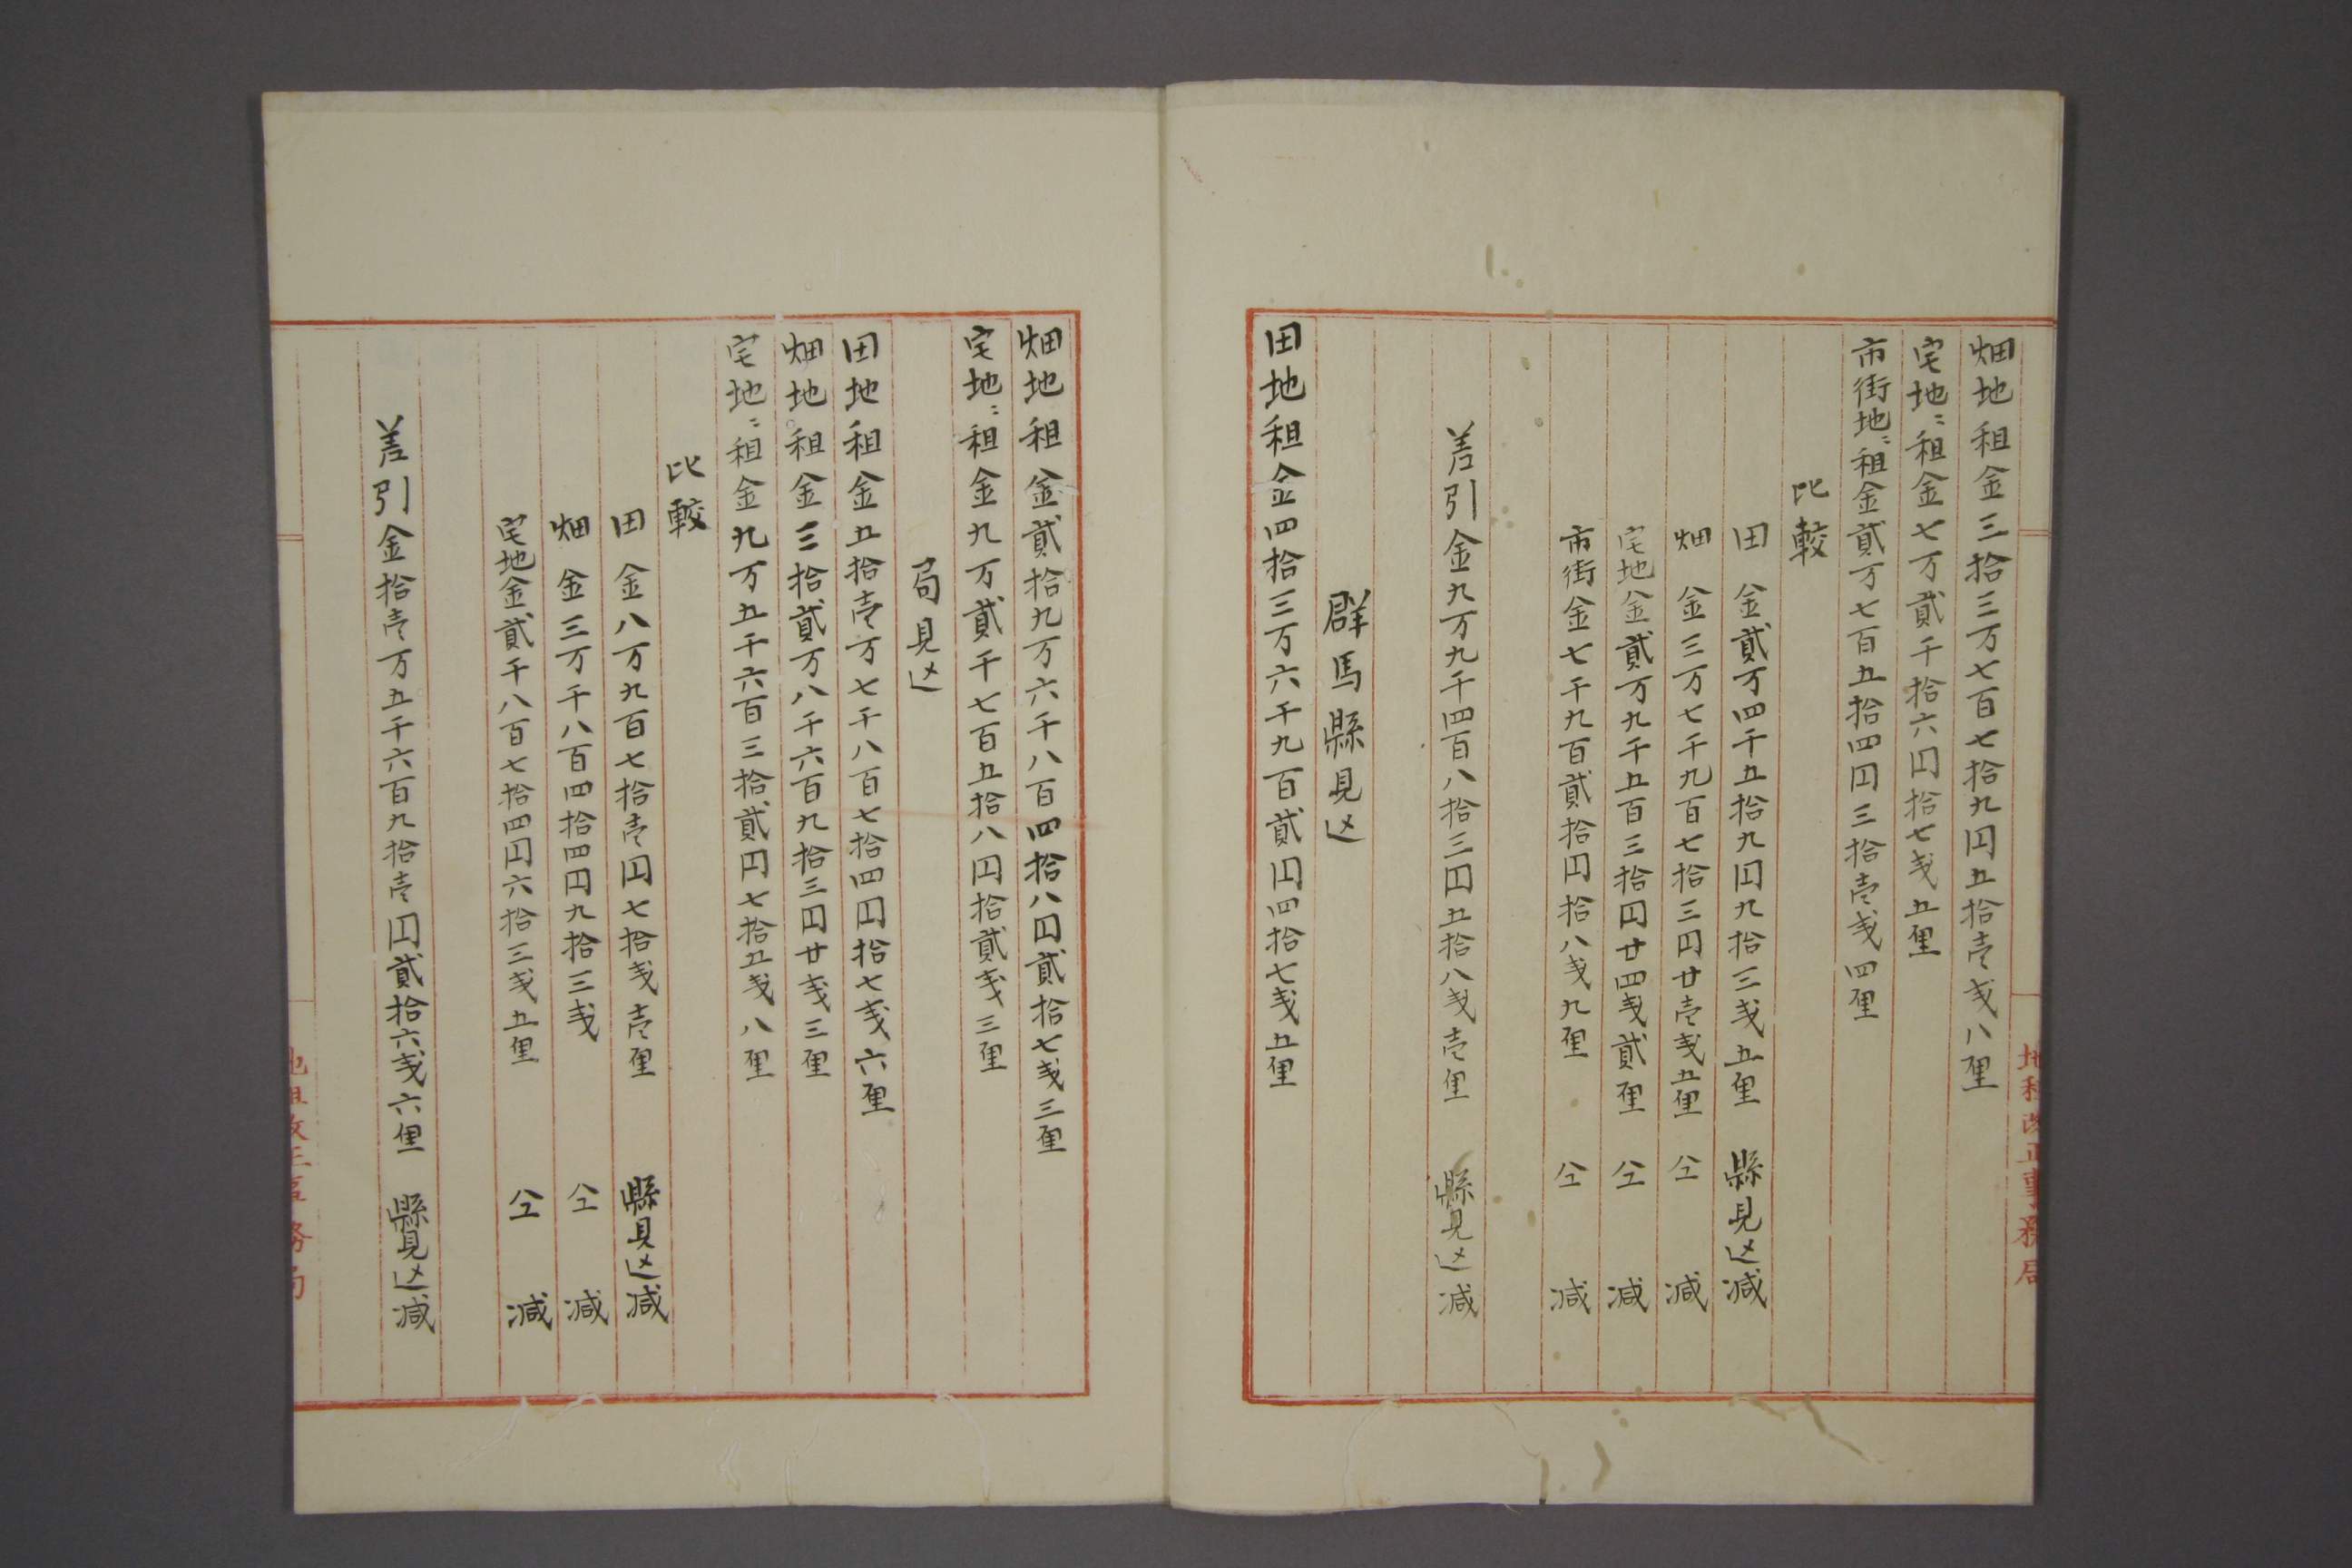 畑地租金三拾三万七百七拾九円五拾壱戋八厘
宅地〻租金七万貳千拾六円拾七戋五厘
市街地〻租金貳万七百五拾四円三拾壱戋四厘
比較
田 金貳万四千五拾九円九拾三戋五厘 縣見込減
畑 金三万七千九百七拾三円廿壱戋五厘 仝 減
宅地金貳万九千五百三拾円廿四戋貳厘 仝 減
市街金七千九百貳拾円拾八戋九厘 仝 減
差引金九万九千四百八拾三円五拾八戋壱厘 縣見込減
群馬縣見込
田地租金四拾三万六千九百貳円四拾七戋五厘
地租改正事務局
畑地租金貳拾九万六千八百四拾八円貳拾七戋三厘
宅地〻租金九万貳千七百五拾八円拾貳戋三厘
局見込
田地租金五拾壱万七千八百七拾四円拾七戋六厘
畑地租金三拾貳万八千六百九拾三円廿戋三厘
宅地〻租金九万五千六百三拾貳円七拾五戋八厘
比較
田 金八万九百七拾壱円七拾戋壱厘 縣見込減
畑 金三万千八百四拾四円九拾三戋 仝 減
宅地金貳千八百七拾四円六拾三戋五厘 仝 減
差引金拾壱万五千六百九拾壱円貳拾六戋六厘 縣見込減
地租改正事務局